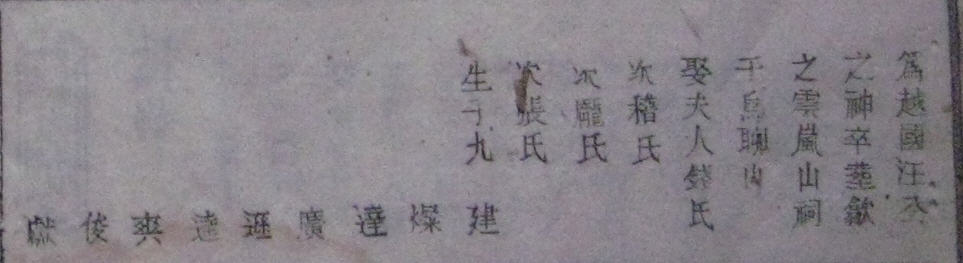 為越國汪公
之神卒塟歙
之雲嵐山祠
于烏聊山
娶夫人錢氏
次稽氏
次龐氏
次張氏
生子九 建
燦
達
廣
遜
逵
爽
俊
獻